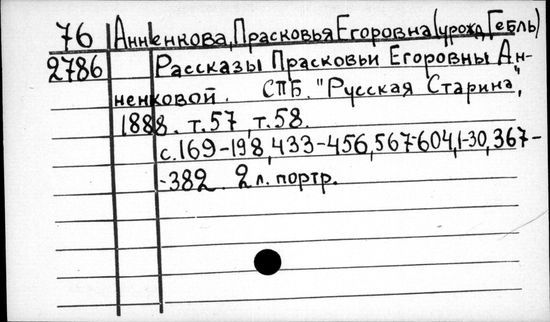 76 Анненкова, Прасковья Егоровна (урожд. Гебль)
2786 Рассказы Прасковьи Егоровны Ан-
ненковой. СПБ. "Русская Старина",
1888. т.57, т.58.
с.169-198, 433-456, 567-604, 1-30, 367-
-382. 2 л. портр.